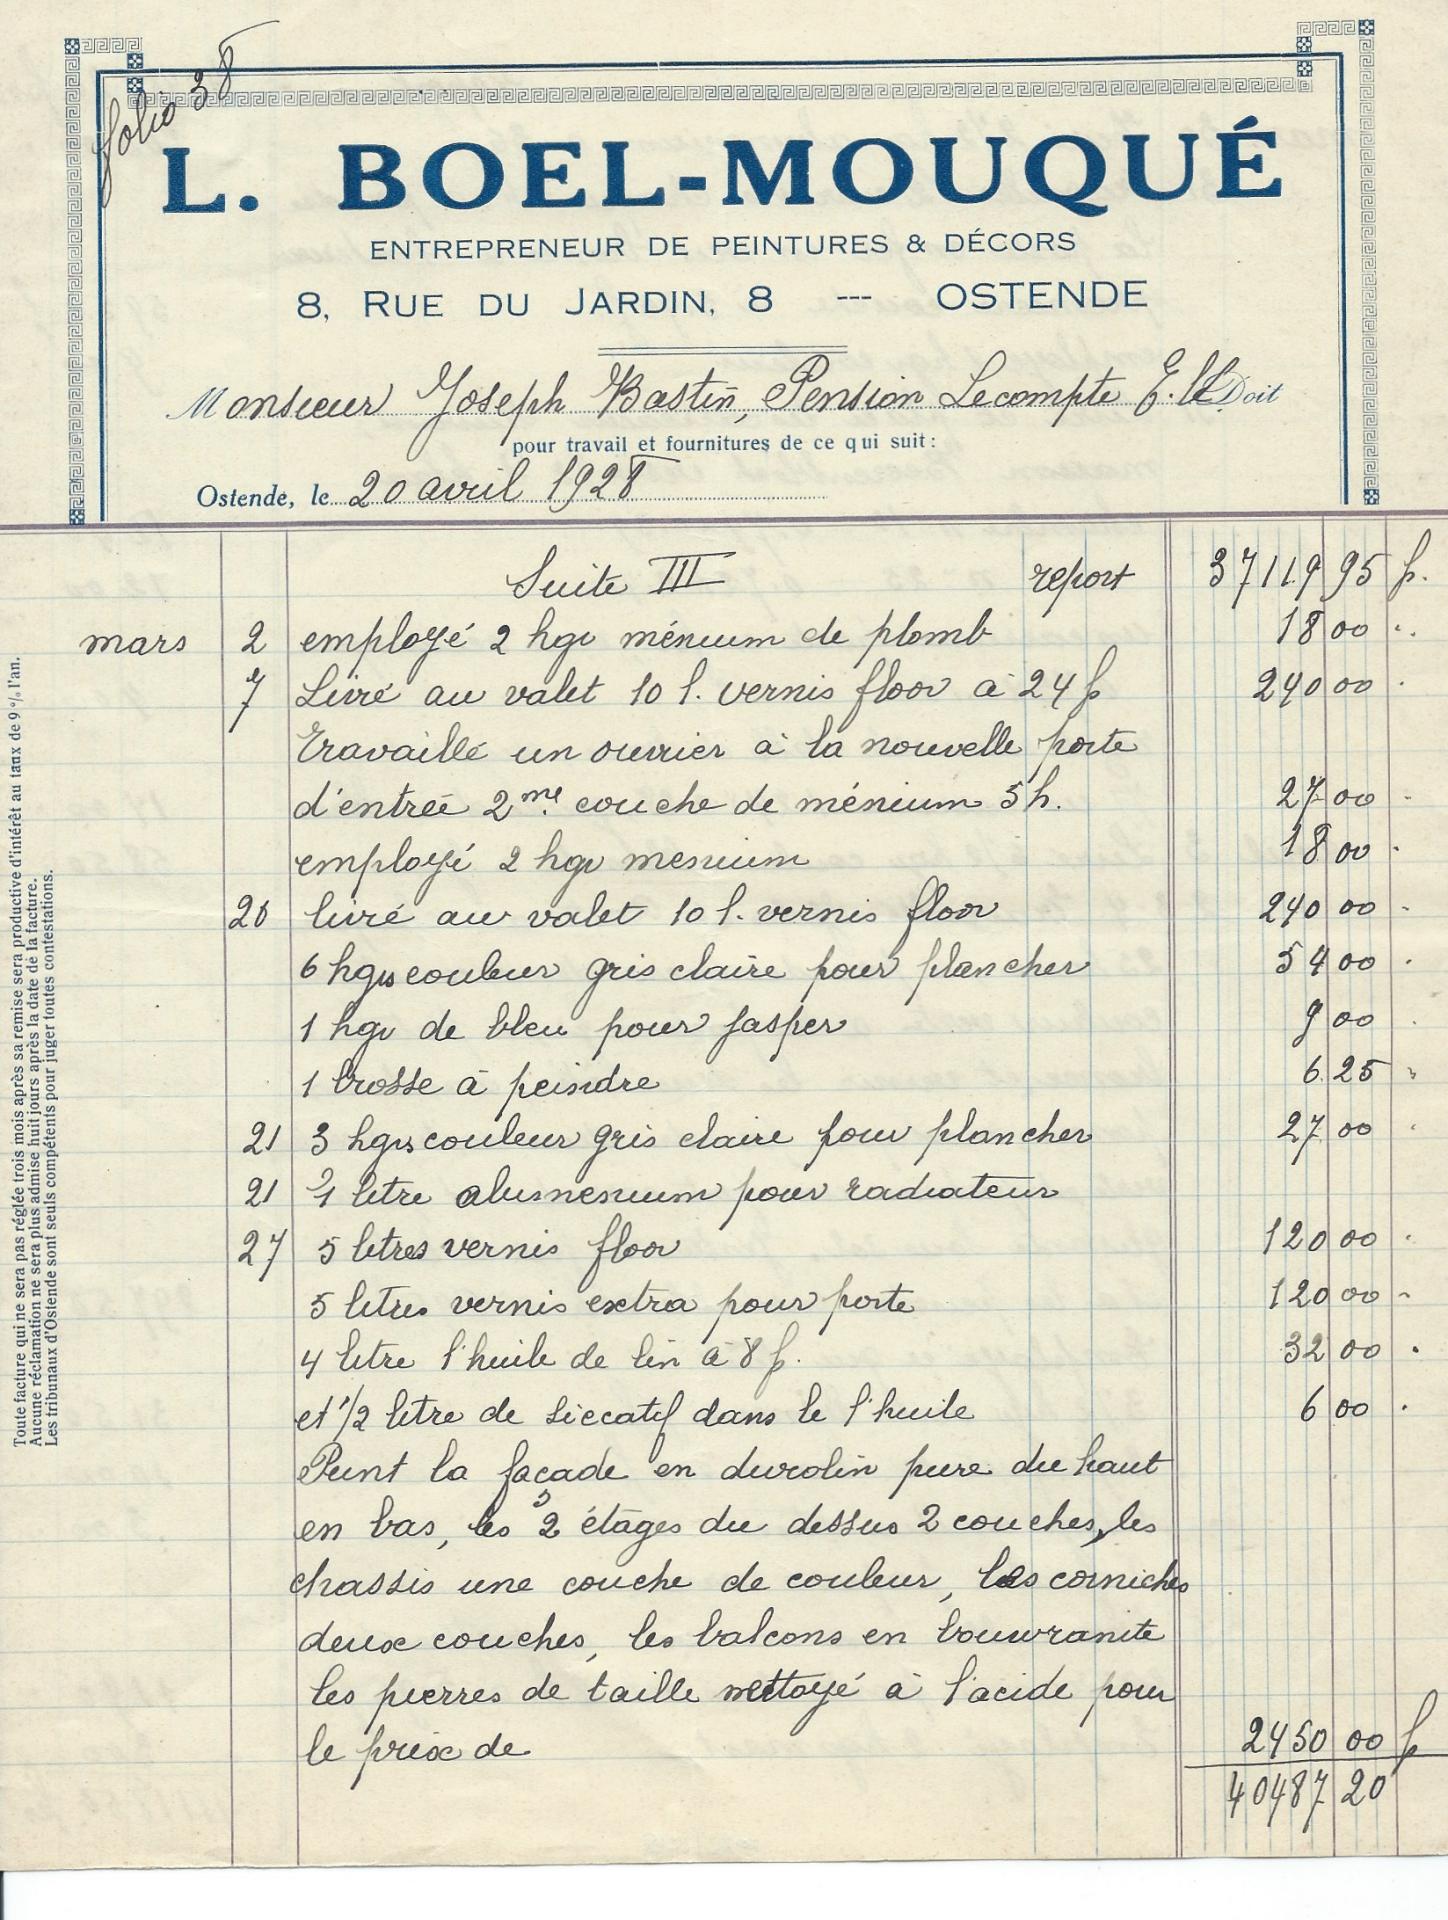 folio 38
L. BOEL-MOUQUÉ
ENTREPRENEUR DE PEINTURES & DÉCORS
8, RUE DU JARDIN, 8 --- OSTENDE
Monsieur Joseph Bastin, Pension Lecompte E.V. Doit
pour travail et fournitures de ce qui suit:
Ostende, le 20 avril 1928
Suite III report 37119 95 f.
mars 2 employé 2 kgr ménium de plomb 18 00
7 Livré au valet 10 l. vernis floor à 24 f 240 00
Travaillé un ouvrier à la nouvelle porte
d'entrée 2me couche de ménium 5 h. 27 00
employé 2 kgr menium 18 00
20 livré au valet 10 l. vernis floor 240 00
6 kgrs couleur gris claire pour plancher 54 00
1 kgr de bleu pour jasper 9 00
1 brosse à peindre 6 25
21 3 kgrs couleur gris claire pour plancher 27 00
21 1 litre alumenium pour radiateur
27 5 litres vernis floor 120 00
5 litres vernis extra pour porte 120 00
4 litre l'huile de lin à 8 f. 32 00
et 1/2 litre de siccatif dans le l'huile 6 00
Peint la façade en durolin pure du haut
en bas, les 2 étages du dessus 2 couches, les
chassis une couche de couleur, les corniches
deux couches, les balcons en bouwranite
les pierres de taille nettoyé à l'acide pour
le prix de 2450 00 f
40487 20
Toute facture qui ne sera pas réglée trois mois après sa remise sera productive d'intérêt au taux de 9 % l'an.
Aucune réclamation ne sera plus admise huit jours après la date de la facture.
Les tribunaux d'Ostende sont seuls compétents pour juger toutes contestations.